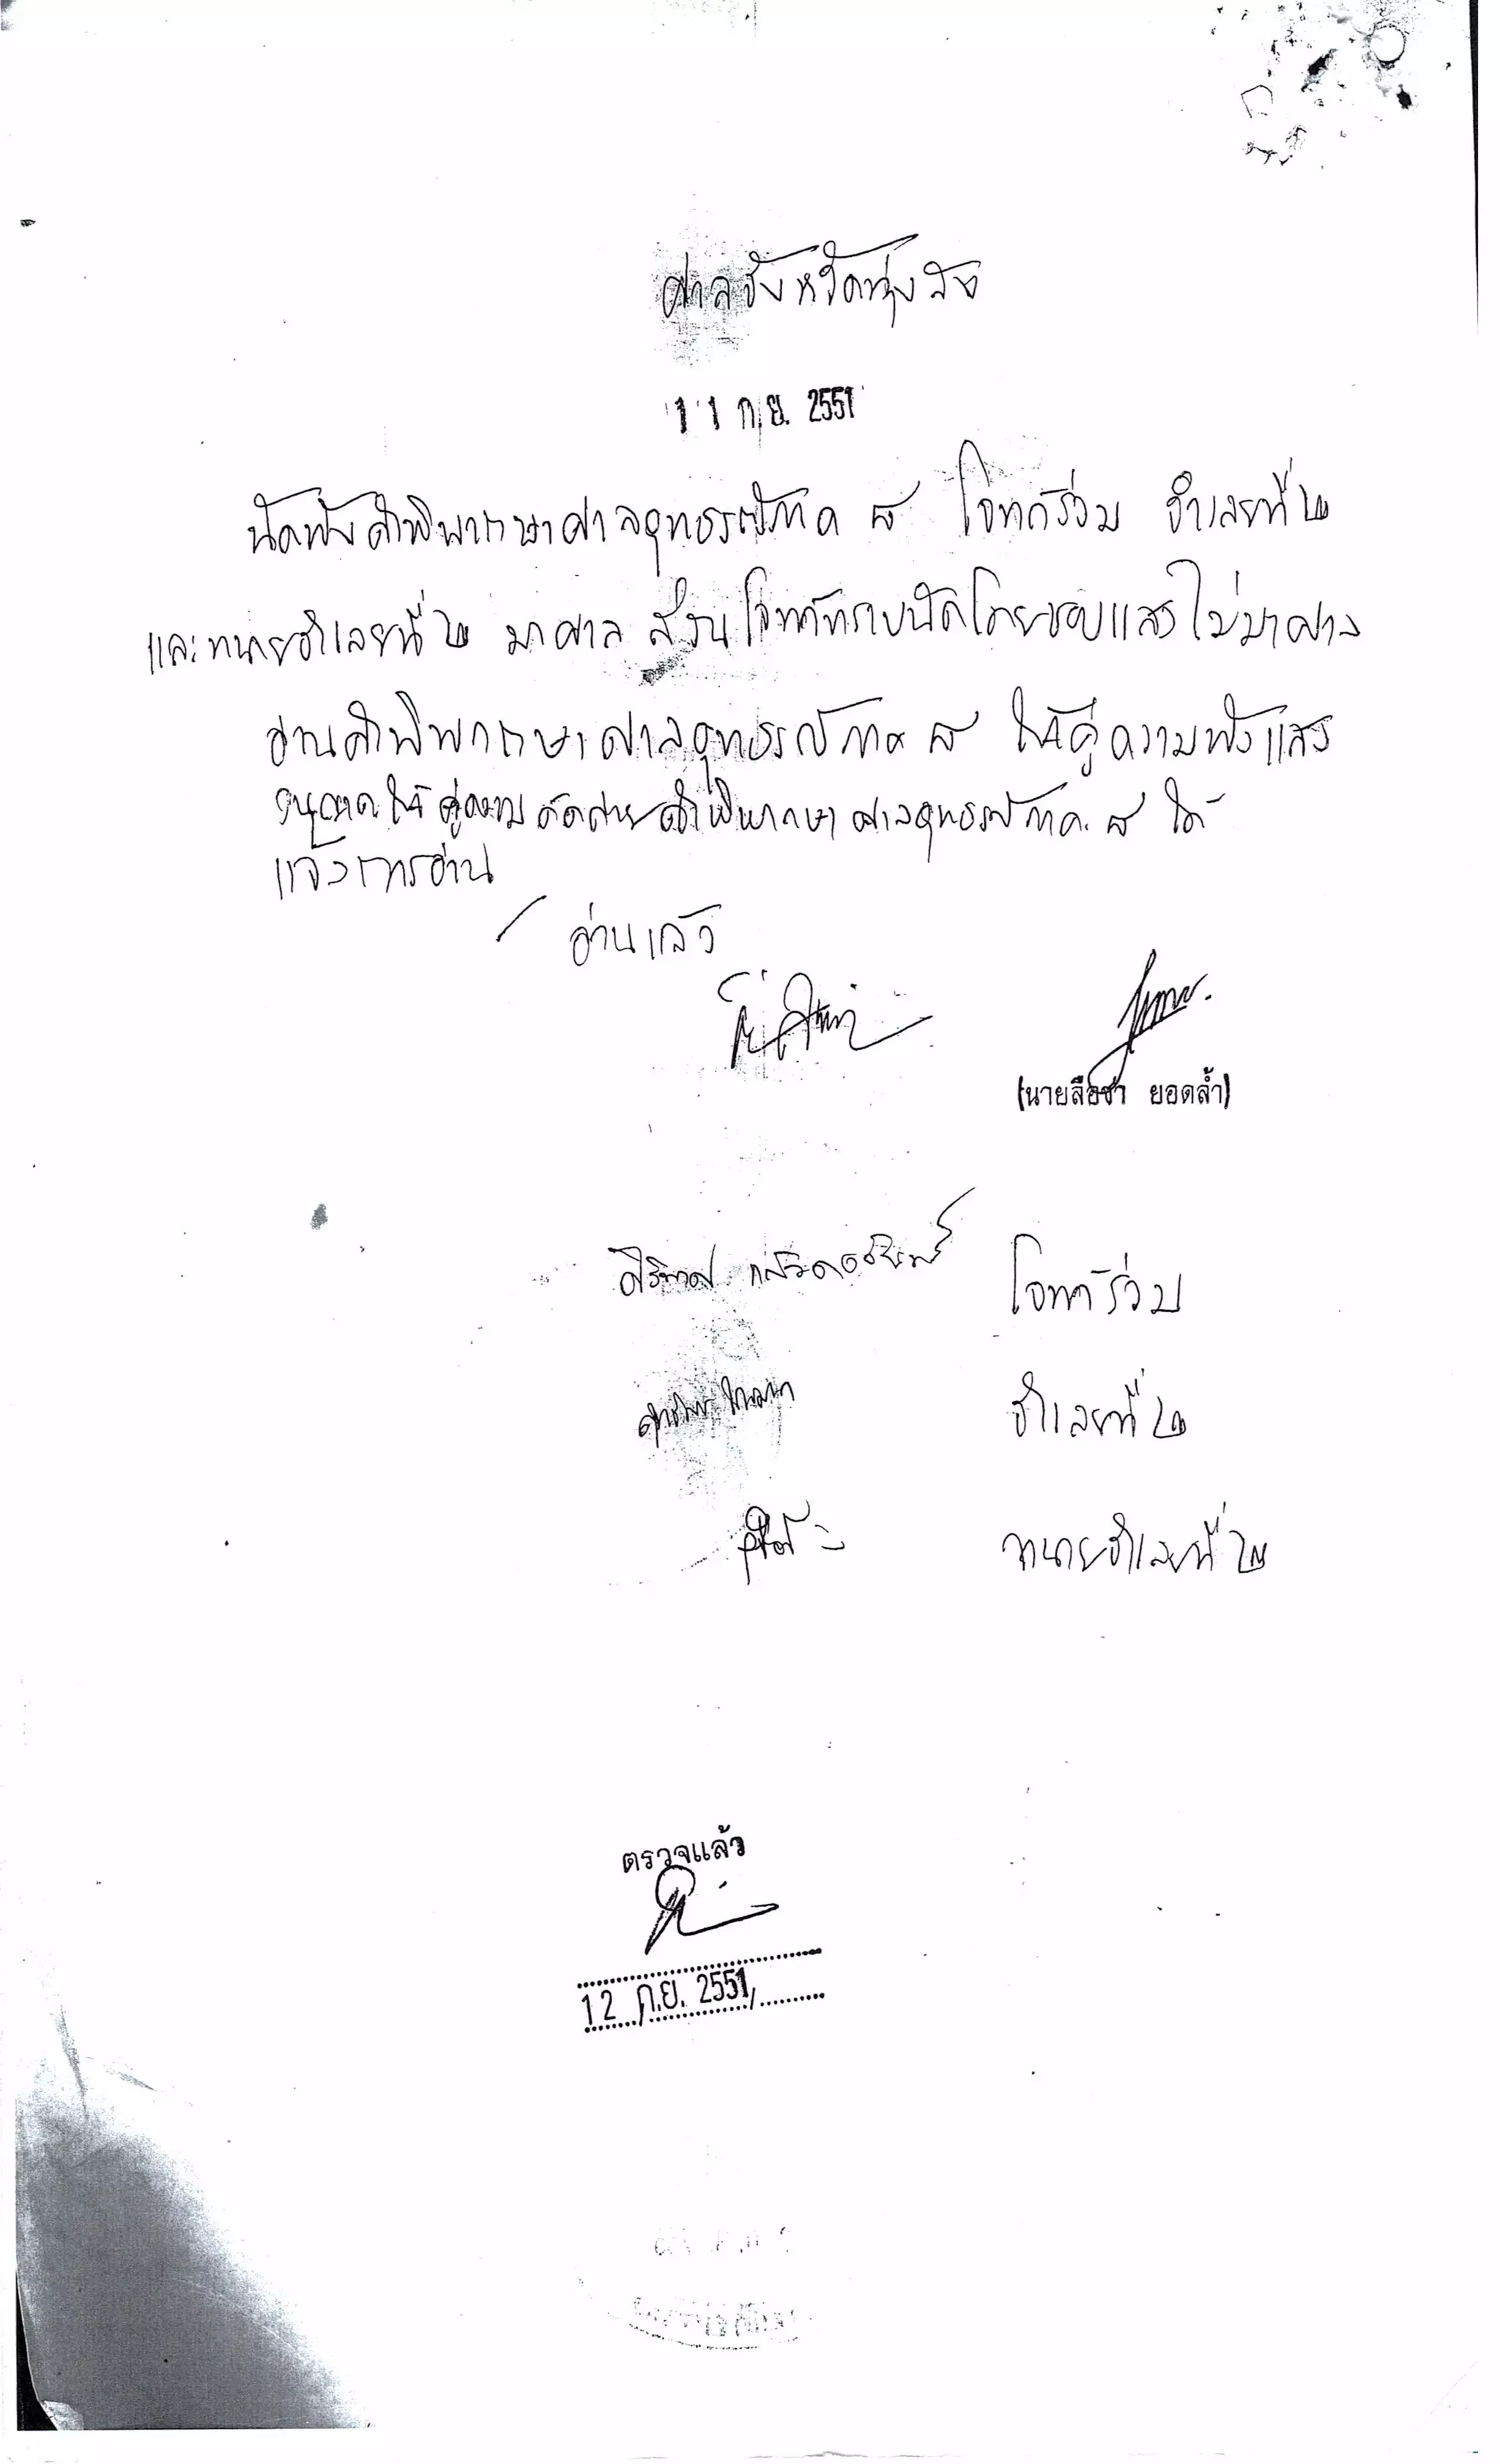 ศาลจังหวัดทุ่งสง
11 ก.ย. 2551
นัดฟังคำพิพากษาศาลอุทธรณ์ภาค ๘ โจทก์ร่วม จำเลยที่ ๒
และทนายจำเลยที่ ๒ มาศาล ส่วนโจทก์ทราบนัดโดยชอบแล้วไม่มาศาล
อ่านคำพิพากษาศาลอุทธรณ์ภาค ๘ ให้คู่ความฟังแล้ว
อนุญาตให้คู่ความคัดถ่ายคำพิพากษาศาลอุทธรณ์ภาค ๘ ได้
แจ้งการอ่าน
อ่านแล้ว
(นายลือชา ยอดล้ำ)
โจทก์ร่วม
จำเลยที่ ๒
ทนายจำเลยที่ ๒
ตรวจแล้ว
12 ก.ย. 2551